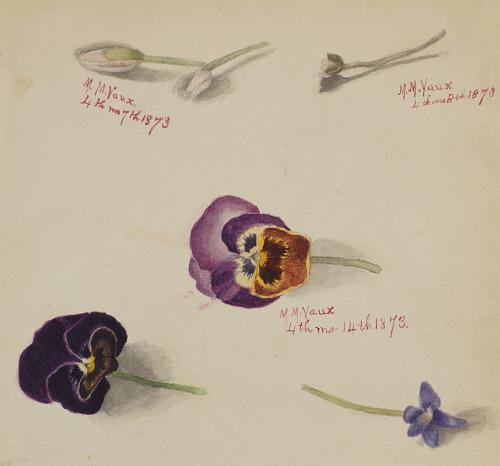 M. M. Vaux.
4th mo 7th 1873
M. M. Vaux
4th mo 8th 1873
M. M. Vaux
4th mo. 14th 1873.